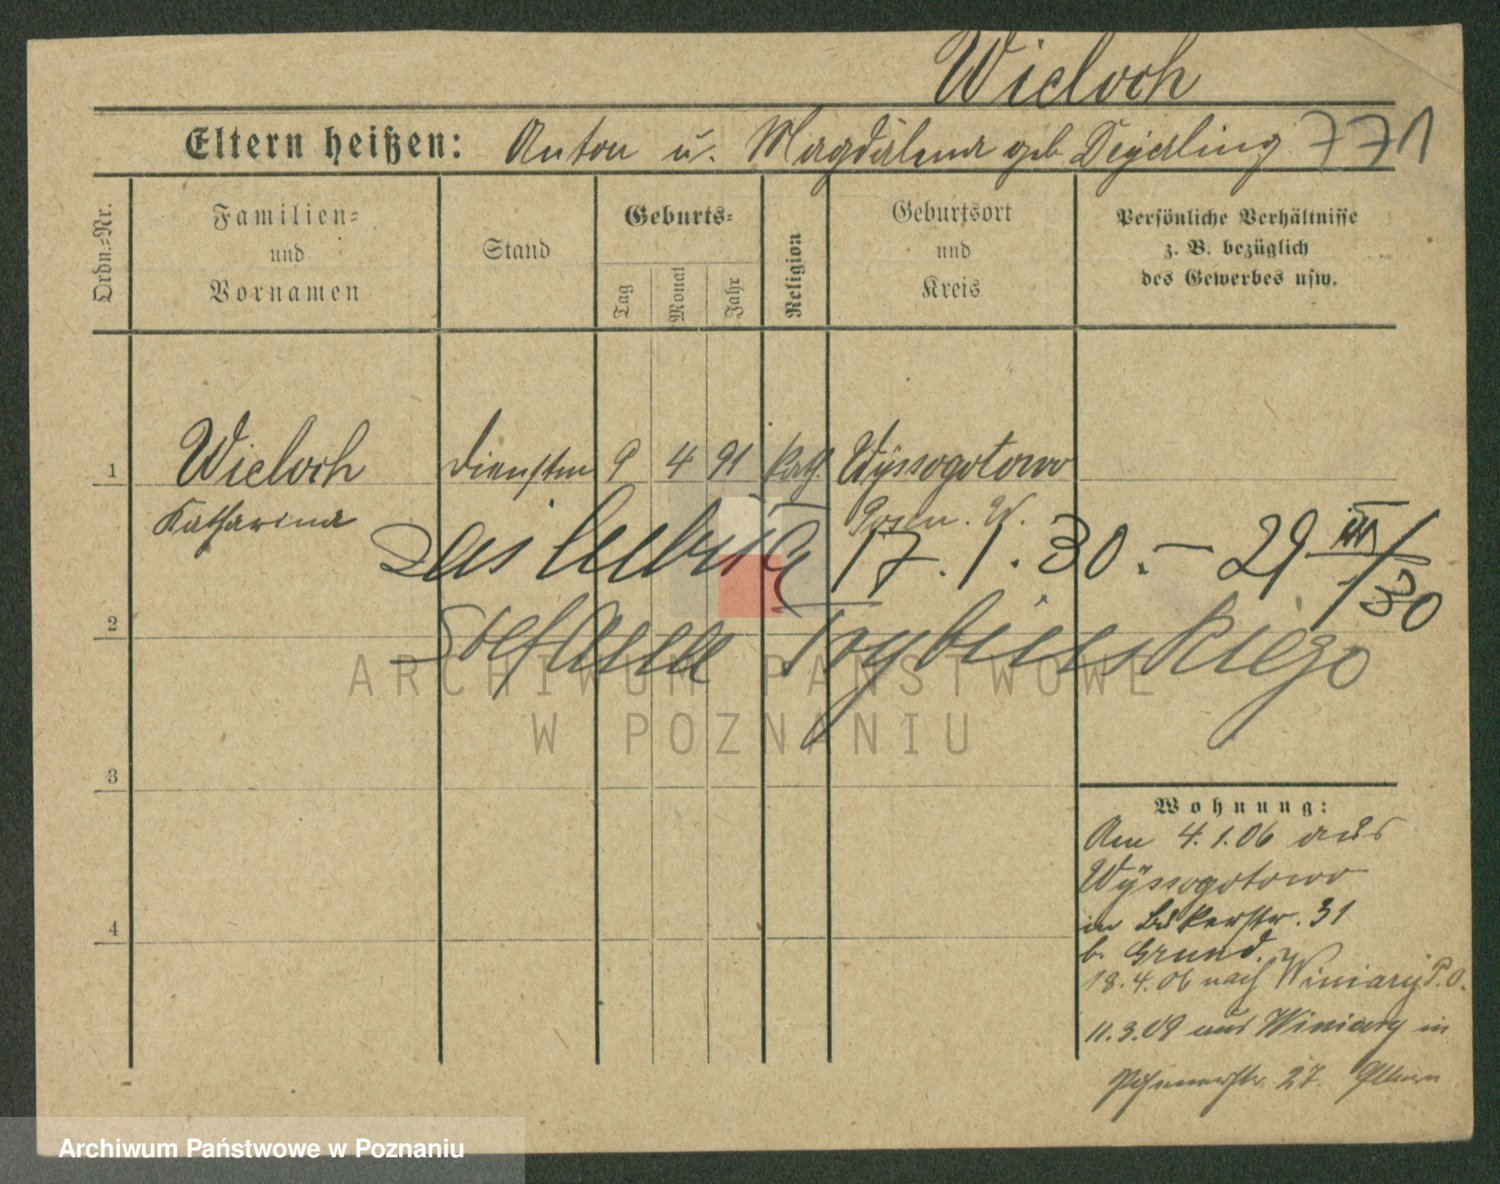 Wieloch
Eltern heißen: Anton u. Magdalena geb. Degerling 771
Ordn.=Nr.
Familien=
und
Vornamen
Stand
Geburts=
Tag
Monat
Jahr
Religion
Geburtsort
und
Kreis
Persönliche Verhältnisse
z. B. bezüglich
des Gewerbes usw.
1 Wieloch Dienstm 9 4 91 kath. Wÿssogotowo
Katharina Posen. W.
17.1.30. – 29 III/30
2 Stefana Trybińskiego
3
4
Wohnung:
Am 4.1.06 aus
Wÿssogotowo
in Bukerstr. 31
b. Grund.
18.4.06 nach Winiarÿ P.O.
11.3.09 aus Winiary in
27. Eltern
ARCHIWUM PAŃSTWOWE
W POZNANIU
Archiwum Państwowe w Poznaniu